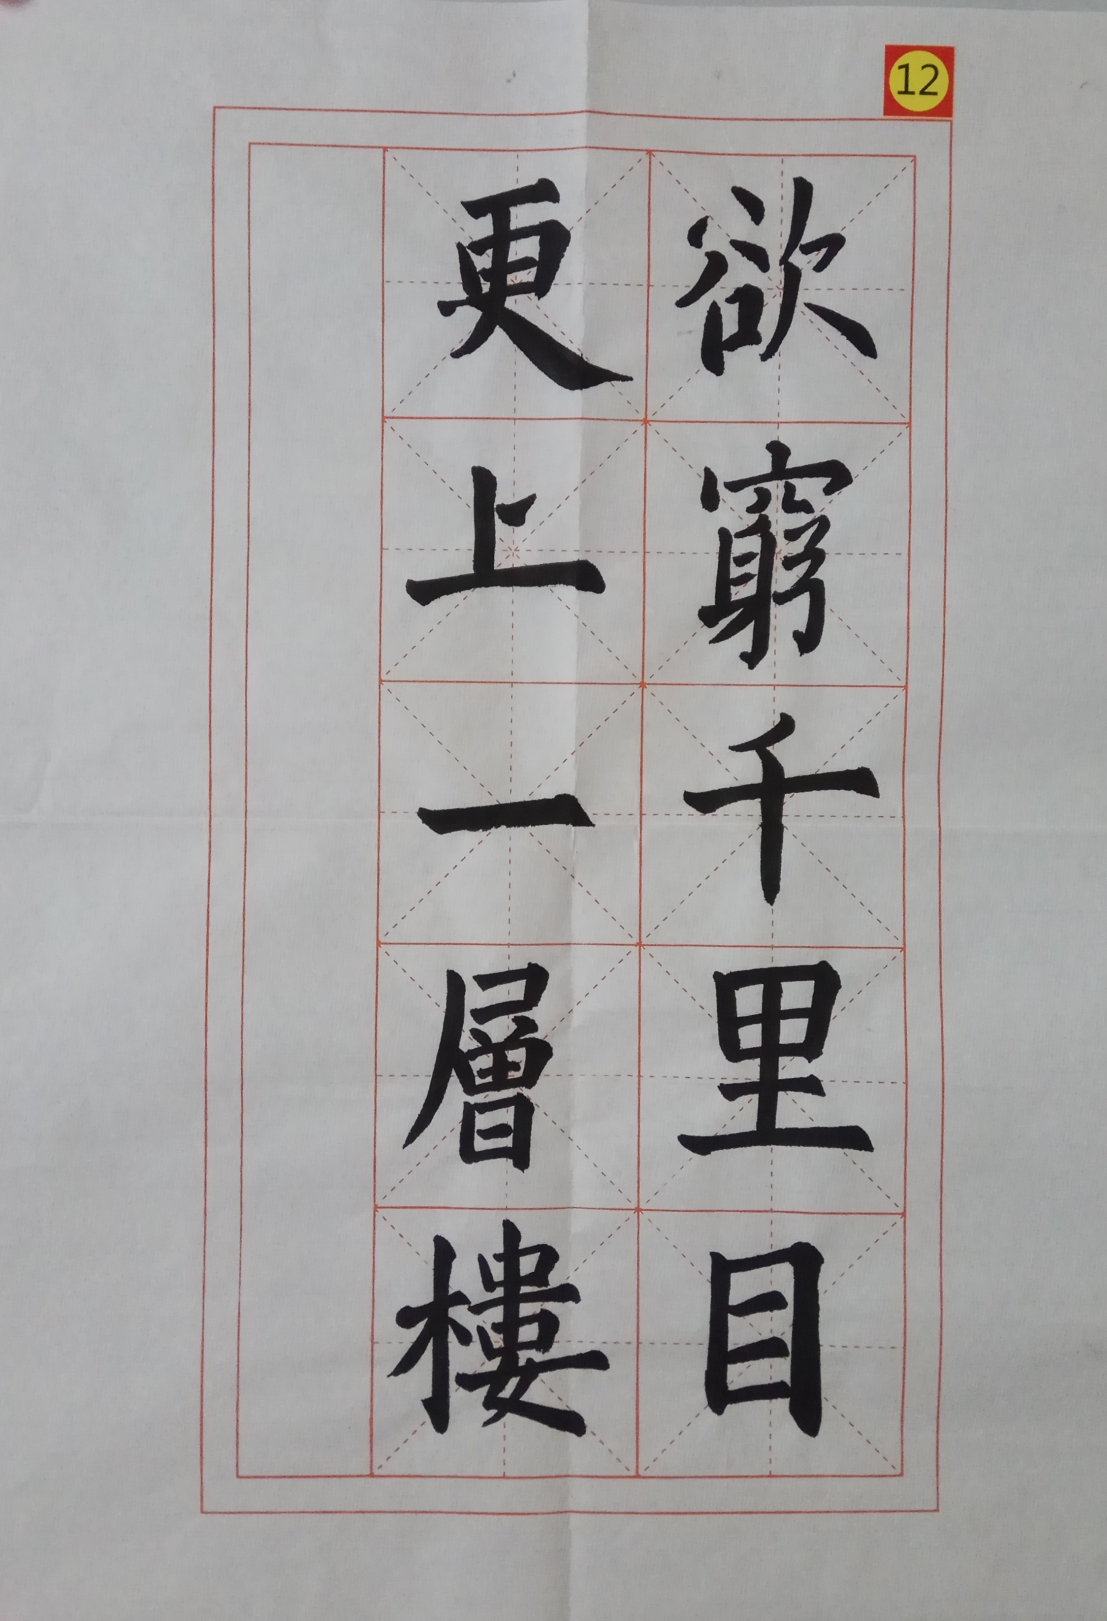 12
欲窮千里目
更上一層樓